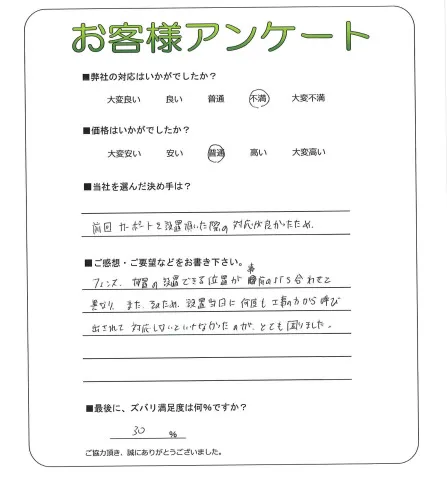 お客様アンケート
■弊社の対応はいかがでしたか？
大変良い 良い 普通 不満 大変不満
■価格はいかがでしたか？
大変安い 安い 普通 高い 大変高い
■当社を選んだ決め手は？
前回 カーポートを設置頂いた際の 対応が良かったため.
■ご感想・ご要望などをお書き下さい。
フェンス、物置の設置できる位置が 事前の 打ち合わせと
異なり、また、そのため、設置当日に何度も 工事の方から呼び
出されて 対応しないといけなかったのが、とても 困りました。
■最後に、ズバリ満足度は何％ですか？
30 ％
ご協力頂き、誠にありがとうございました。